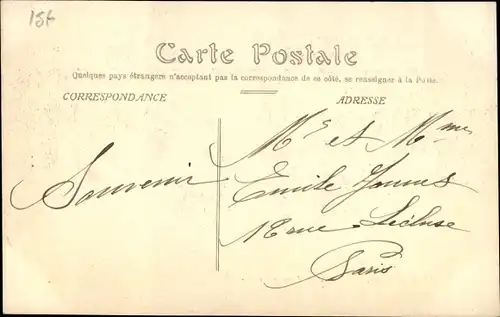 156
Carte Postale
Quelques pays étrangers n'acceptant pas la correspondance de ce côté, se renseigner à la Poste.
CORRESPONDANCE
ADRESSE
Souvenir
Mr et Mme
Emile
18 rue Lécluse
Paris